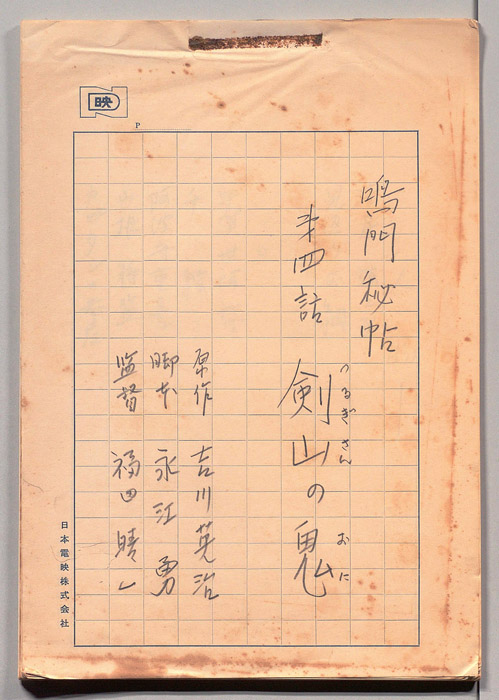 映
P.
鳴門秘帖
才四話 剣山の鬼
つるぎさん おに
原作 吉川英治
脚本 永江勇
監督 福田晴一
日本電映株式会社